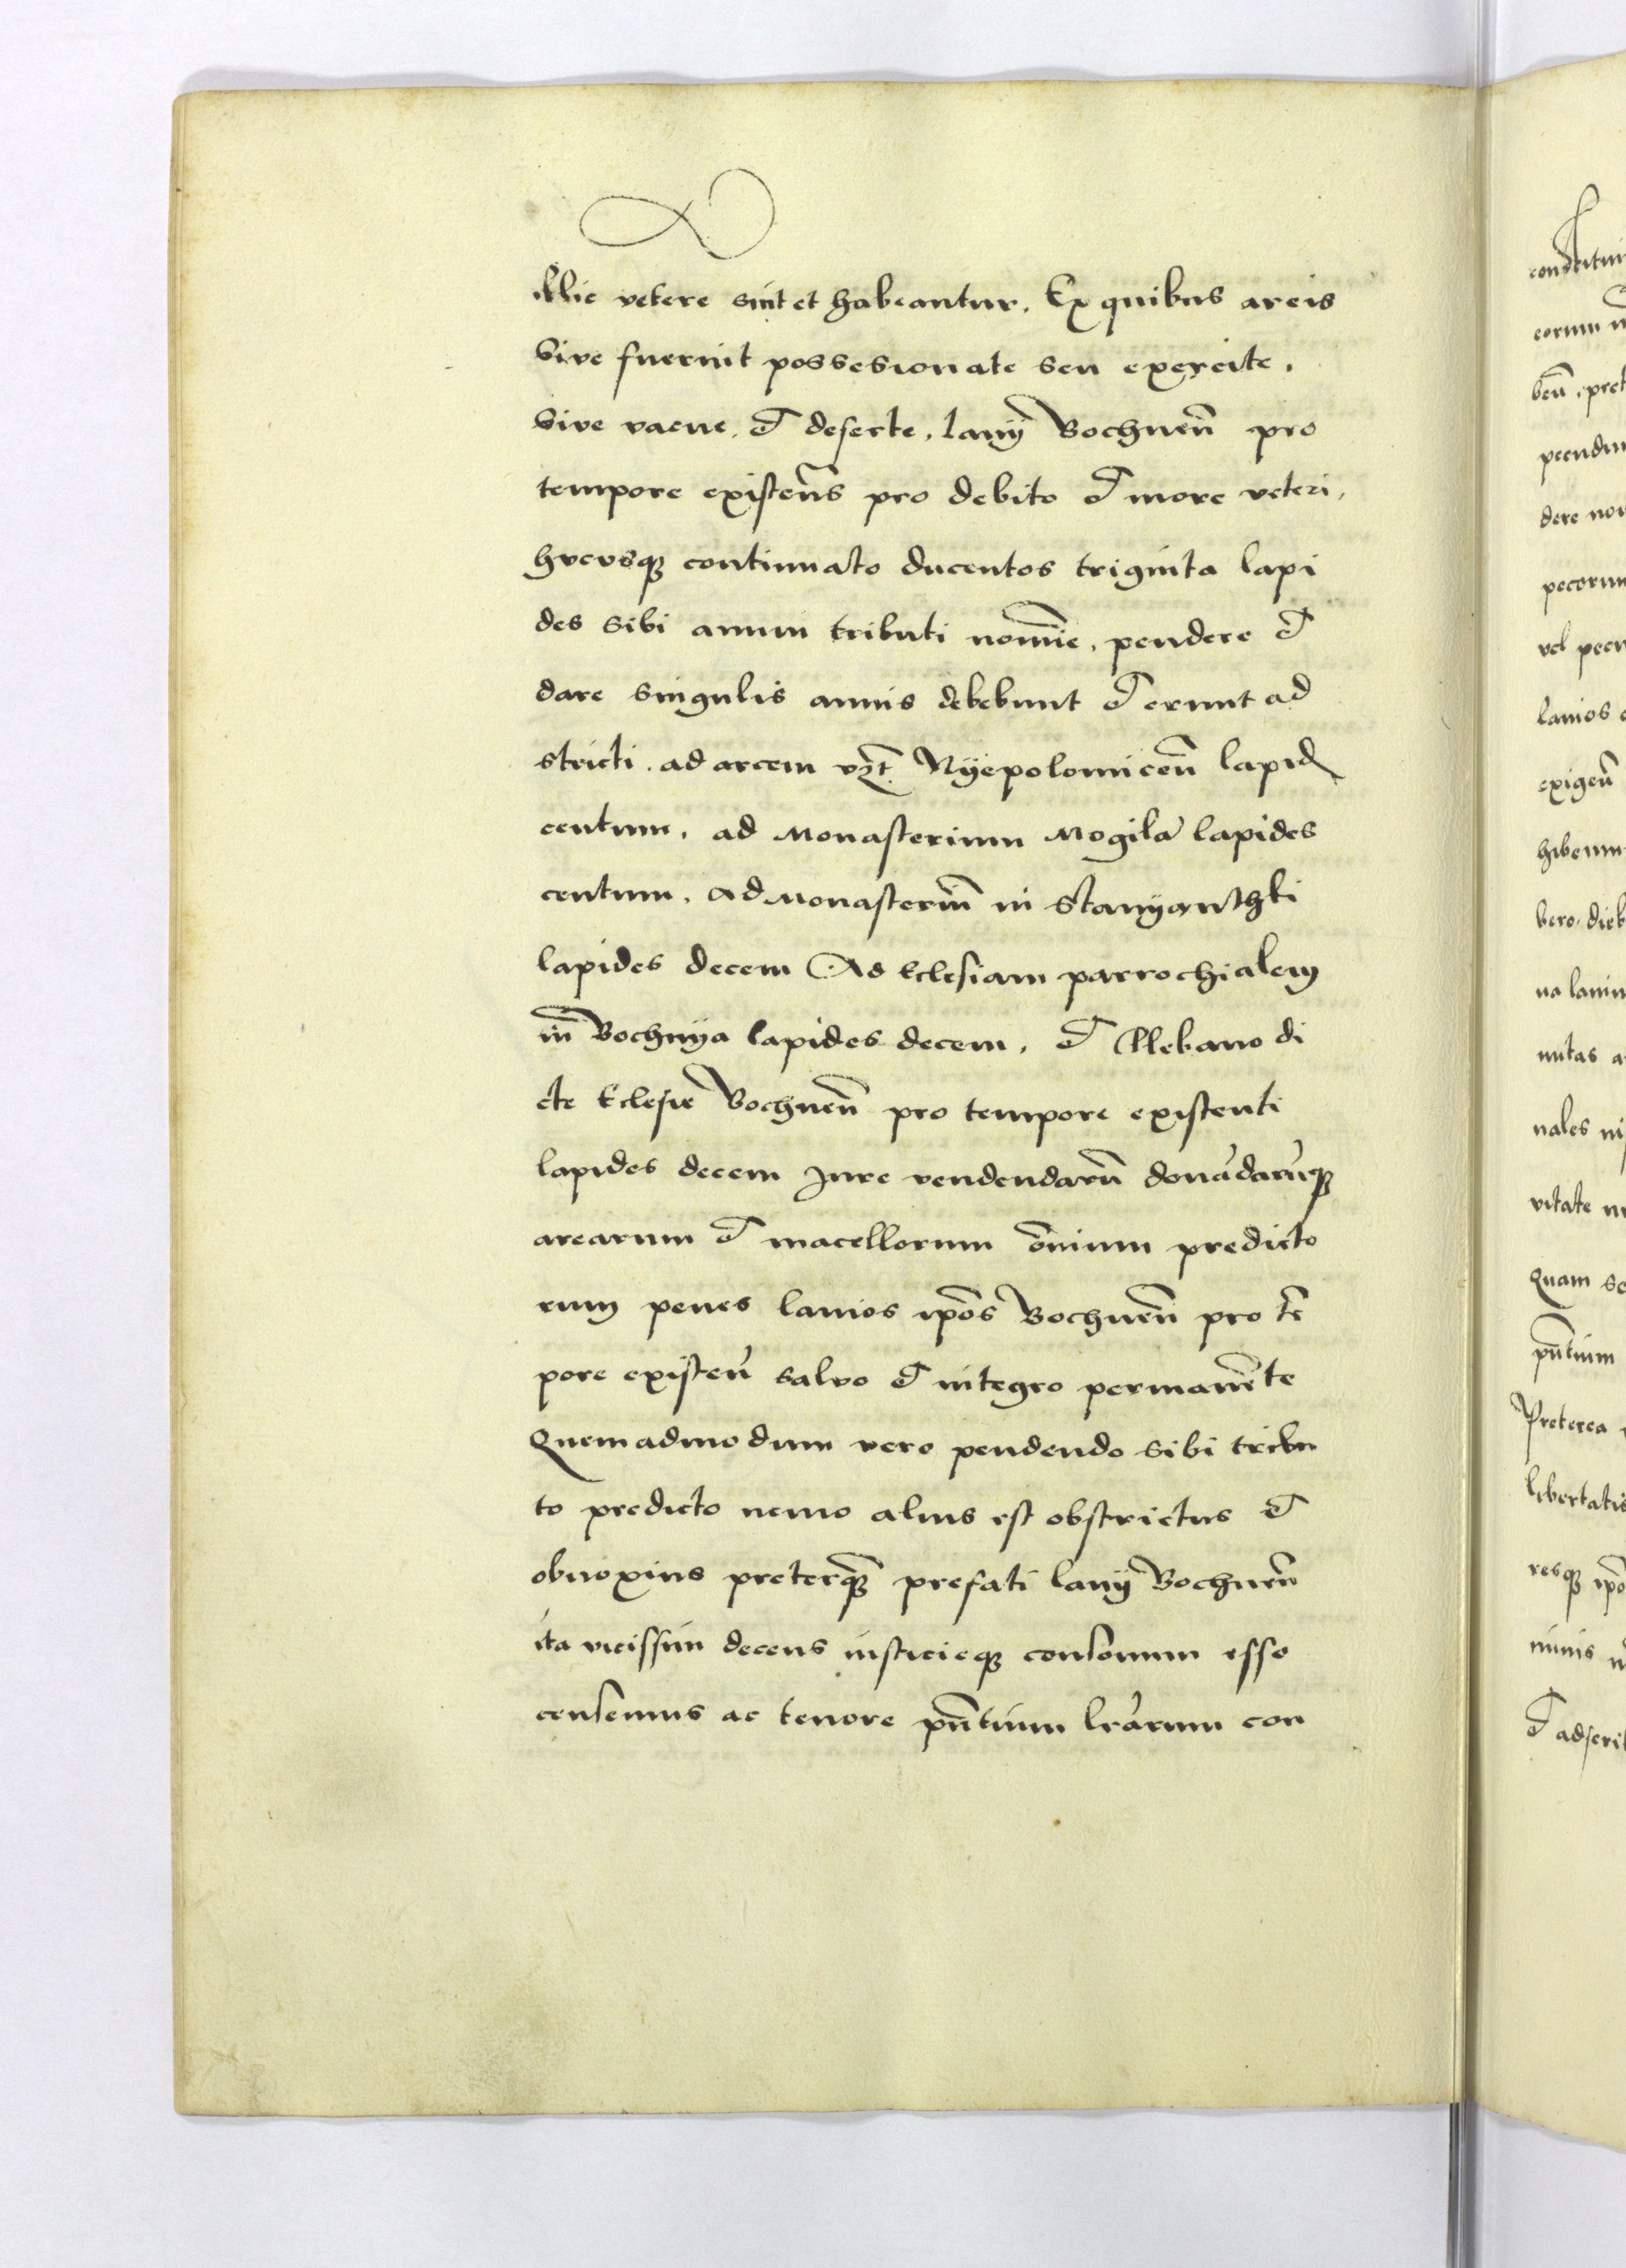 illic vetere sint et habeantur. Ex quibus areis
sive fuerint possesionate seu exercite.
sive vacue. et deserte. lanÿ Bochneñ pro
tempore existeñs pro debito et more veteri,
hucusq continuato ducentos triginta lapi
des sibi annui tributi nomīe. pendere et
dare singulis annis debebunt et erunt ad
stricti. ad arcem vzt Nÿepolomiceñ lapid
centum. ad Monasterium Mogila lapides
centum. Ad Monasteriū in Stanÿanthki
lapides decem Ad Eclesiam parrochialem
in Bochnÿa lapides decem. et Plebano di
cte Eclesie Bochneñ pro tempore existenti
lapides decem Jure vendendarū donādarūq
arearum et macellorum om̄ium predicto
rum penes lanios ip̄os Bochneñ pro tē
pore existeñ salvo et integro permanēte
Quemadmodum vero pendendo sibi tribu
to predicto nemo alius est obstrictus et
obnoxius preterq̄ prefati lanÿ Bochneñ
ita vicissim decens iusticieq consonum esse
censemus ac tenore pñtium lr̄arum con
constitui
eorum
beñ. pret
pecudu
dere non
pecorum
vel pecu
lanios
exigeñ
hibemu
vero. dieb
na laniu
nutas a
nales ni
vitate
Quam se
pñtium
Preterea
libertatis
resq ip̄o
nimis
et adscri